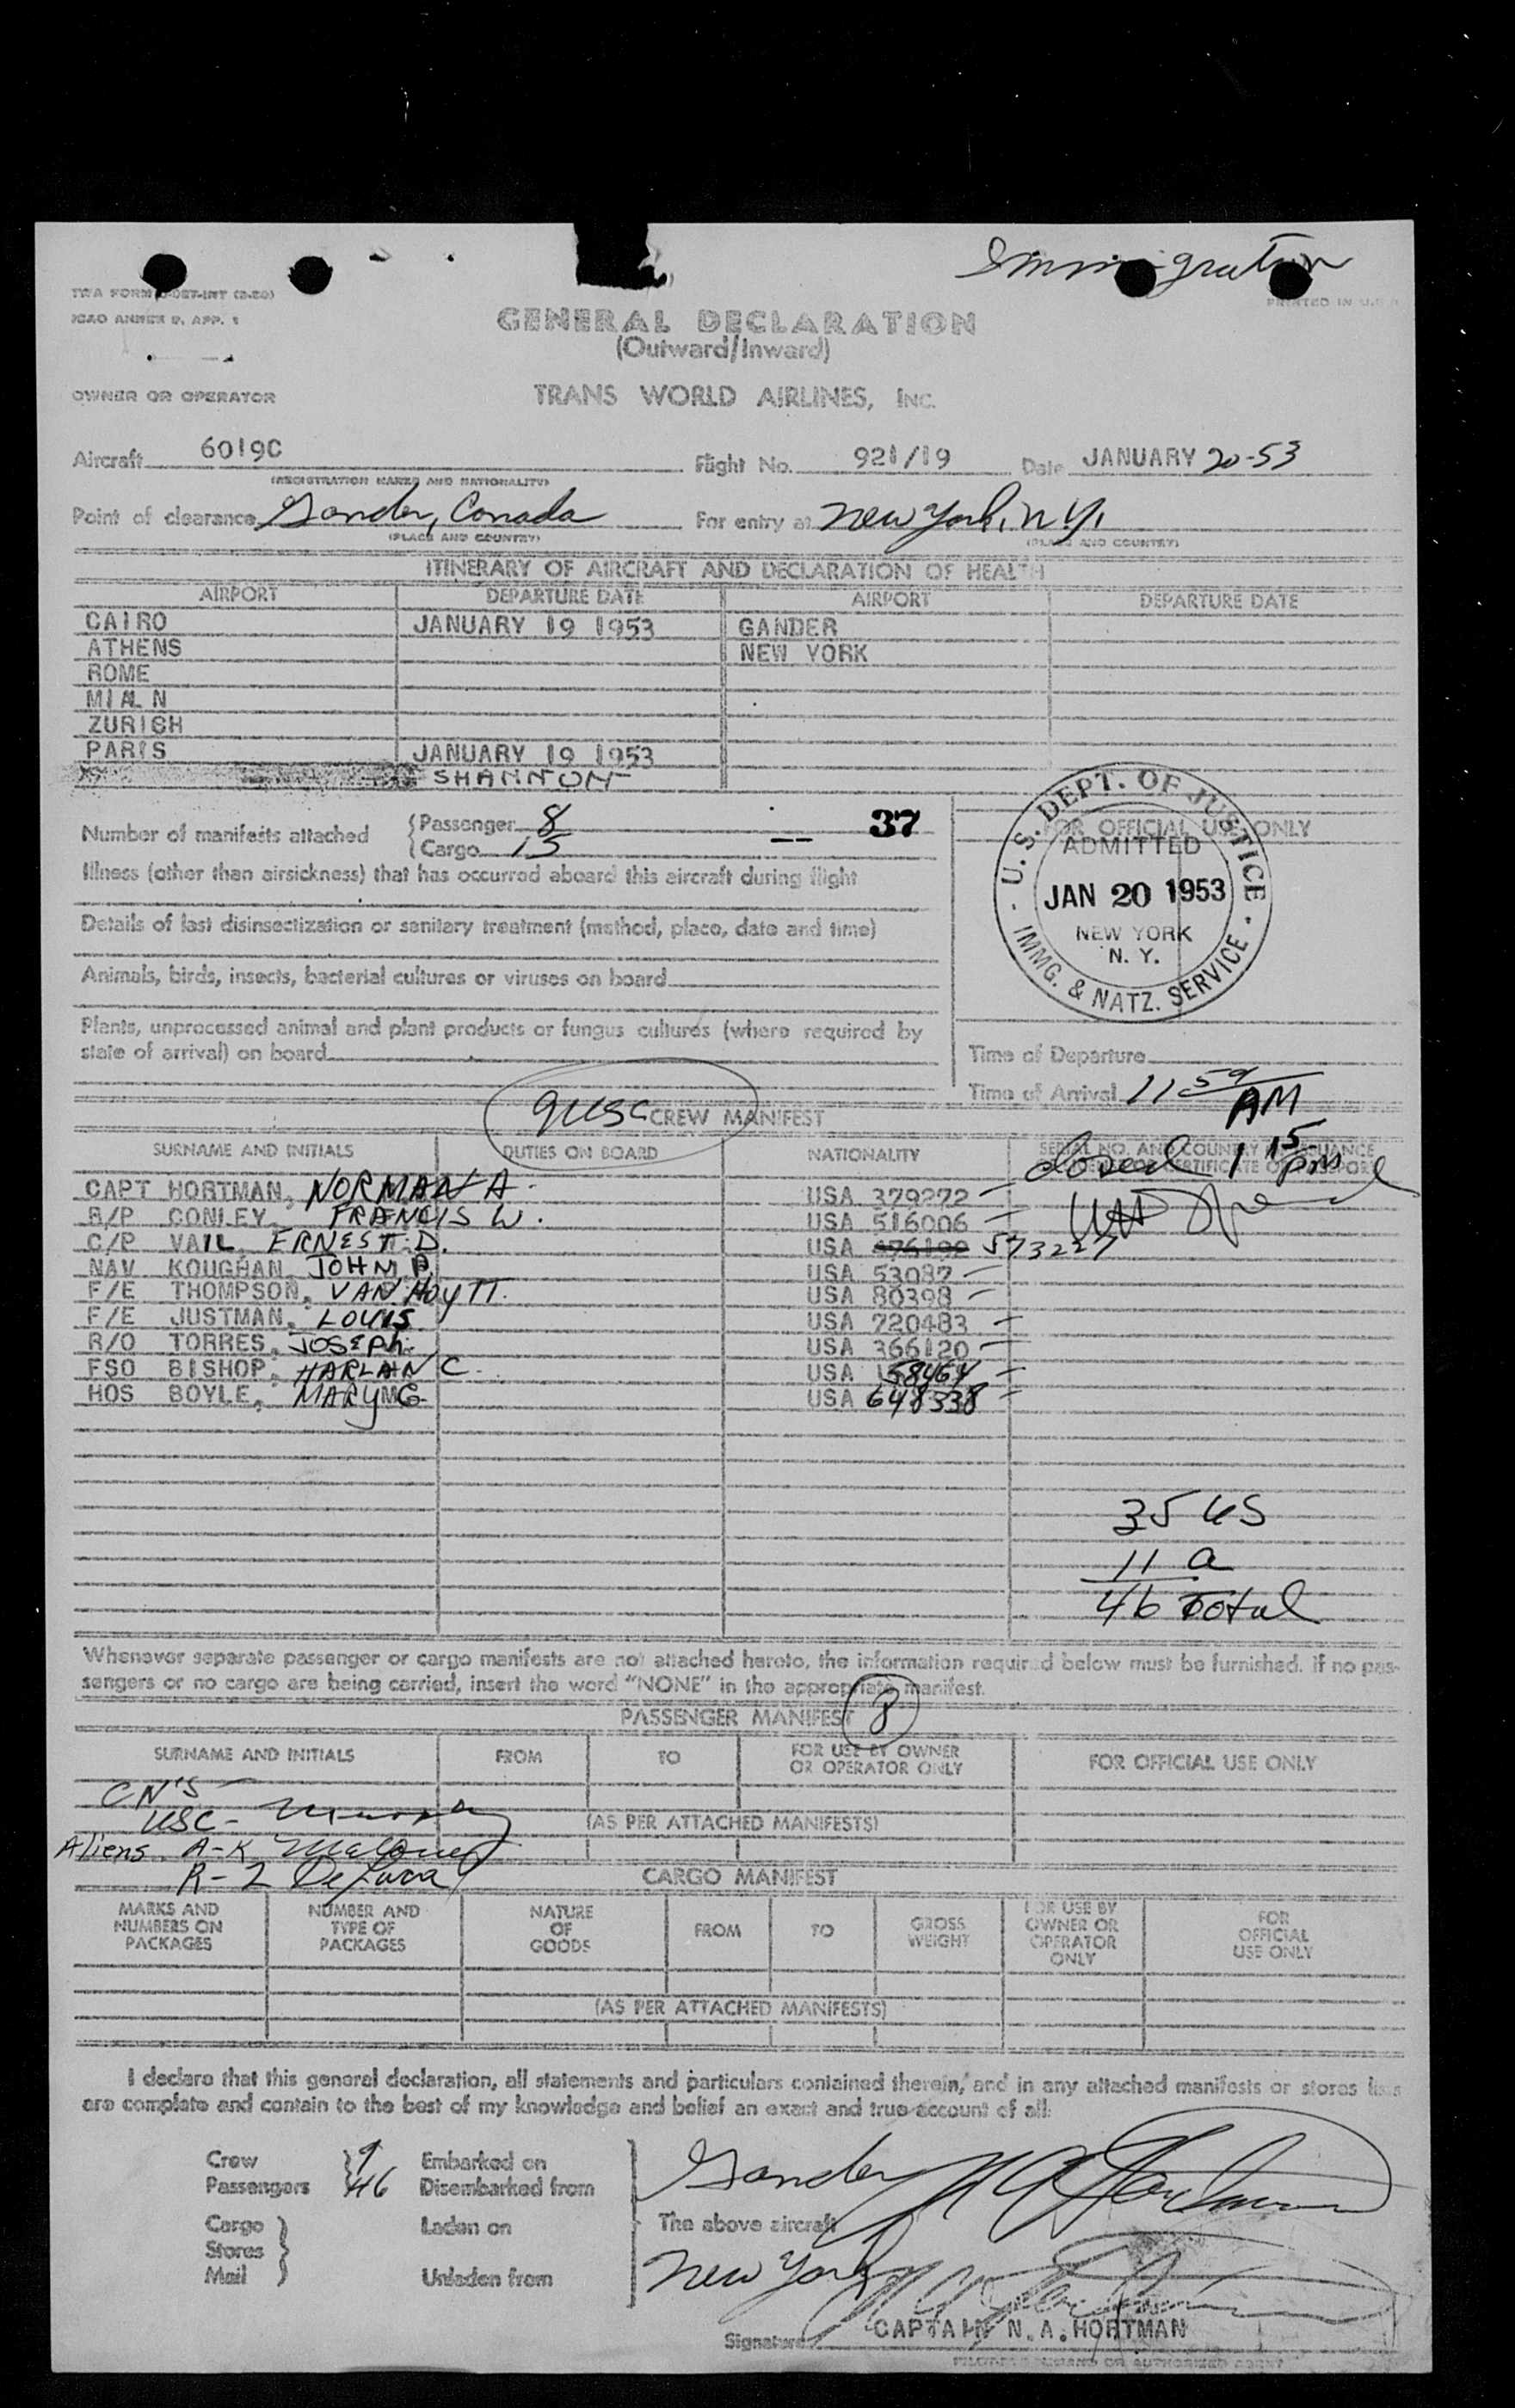 Immigration
TWA FORM
ICAO ANNEX 9, APP. 1
PRINTED IN U.S.A.
GENERAL DECLARATION
(Outward/Inward)
OWNER OR OPERATOR
TRANS WORLD AIRLINES, INC.
Aircraft 6019C Flight No. 921/19 Date JANUARY 20-53
(REGISTRATION MARKS AND NATIONALITY)
Point of clearance Gander, Canada For entry at New York, N.Y.
(PLACE AND COUNTRY) (PLACE AND COUNTRY)
ITINERARY OF AIRCRAFT AND DECLARATION OF HEALTH
AIRPORT DEPARTURE DATE AIRPORT DEPARTURE DATE
CAIRO JANUARY 19 1953 GANDER
ATHENS NEW YORK
ROME
MIA N
ZURICH
PARIS JANUARY 19 1953
SHANNON
Number of manifests attached { Passenger 8 -- 37
{ Cargo 15
FOR OFFICIAL USE ONLY
U.S. DEPT. OF JUSTICE
ADMITTED
JAN 20 1953
NEW YORK
N. Y.
IMMG. & NATZ. SERVICE
Illness (other than airsickness) that has occurred aboard this aircraft during flight
Details of last disinsectization or sanitary treatment (method, place, date and time)
Animals, birds, insects, bacterial cultures or viruses on board
Plants, unprocessed animal and plant products or fungus cultures (where required by
state of arrival) on board
Time of Departure
Time of Arrival 11 59 AM
9 USC CREW MANIFEST
SURNAME AND INITIALS DUTIES ON BOARD NATIONALITY SERIAL NO. AND COUNTRY OF ISSUANCE
CERTIFICATE OR PASSPORT
Closed 1 15 pm
CAPT HORTMAN, NORMAN A. USA 379272 -
R/P CONLEY, FRANCIS W. USA 516006 -
C/P VAIL, ERNEST D. USA 573227
NAV KOUGHAN, JOHN P. USA 53087 -
F/E THOMPSON, VAN HOYTT. USA 80398 -
F/E JUSTMAN, LOUIS USA 720483 -
R/O TORRES, JOSEPH. USA 366120 -
FSO BISHOP, HARLAN C. USA 158464 -
HOS BOYLE, MARY MG. USA 648338 -
35 US
11 a
46 Total
Whenever separate passenger or cargo manifests are not attached hereto, the information required below must be furnished. If no pas-
sengers or no cargo are being carried, insert the word "NONE" in the appropriate manifest.
PASSENGER MANIFEST 8
SURNAME AND INITIALS FROM TO FOR USE BY OWNER OR OPERATOR ONLY FOR OFFICIAL USE ONLY
CN'S
USC-
(AS PER ATTACHED MANIFESTS)
Aliens A-K Maloney
R-Z DeLuca
CARGO MANIFEST
MARKS AND NUMBERS ON PACKAGES NUMBER AND TYPE OF PACKAGES NATURE OF GOODS FROM TO GROSS WEIGHT FOR USE BY OWNER OR OPERATOR ONLY FOR OFFICIAL USE ONLY
(AS PER ATTACHED MANIFESTS)
I declare that this general declaration, all statements and particulars contained therein, and in any attached manifests or stores lists
are complete and contain to the best of my knowledge and belief an exact and true account of all:
Crew } 9 Embarked on Gander N A Hortman
Passengers } 46 Disembarked from
Cargo } Laden on The above aircraft
Stores }
Mail } Unladen from New York N A Hortman
Signature CAPTAIN N. A. HORTMAN
PILOT-IN-COMMAND OR AUTHORIZED AGENT